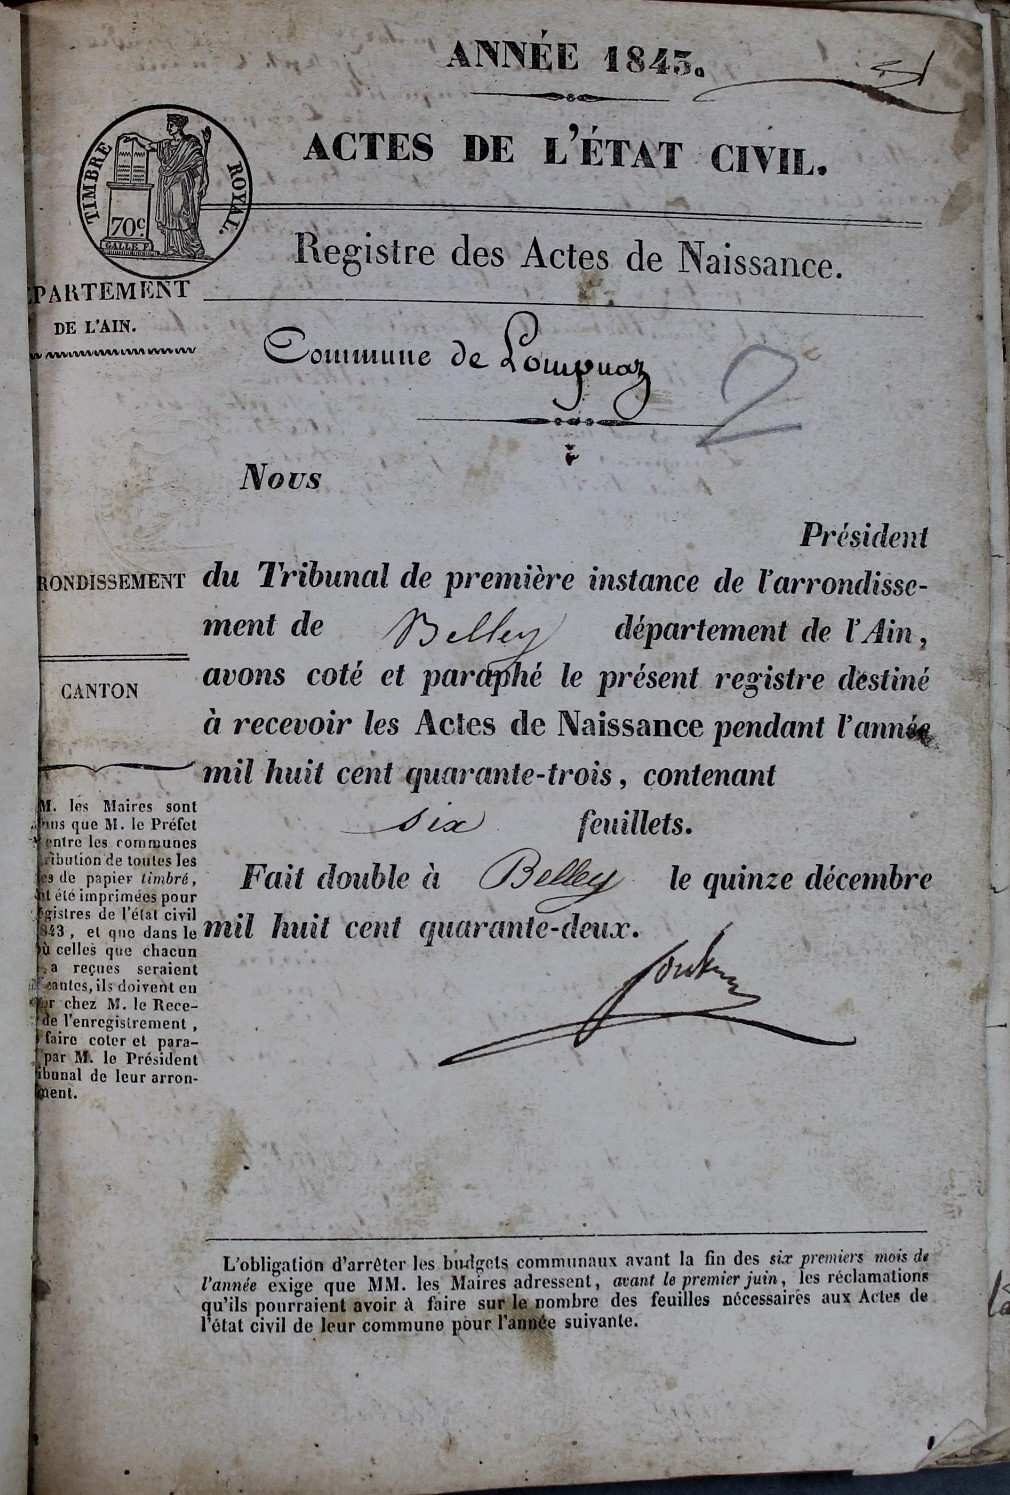 ANNÉE 1843.
ACTES DE L'ÉTAT CIVIL.
TIMBRE ROYAL.
70c.
GALLE F.
Registre des Actes de Naissance.
PARTEMENT
DE L'AIN.
Commune de Lompnaz
2
Nous
Président
RONDISSEMENT
du Tribunal de première instance de l'arrondisse-
ment de Belley département de l'Ain,
CANTON
avons coté et paraphé le présent registre destiné
à recevoir les Actes de Naissance pendant l'année
mil huit cent quarante-trois, contenant
six feuillets.
Fait double à Belley le quinze décembre
mil huit cent quarante-deux.
M. les Maires sont
que M. le Préfet
entre les communes
ribution de toutes les
de papier timbré,
été imprimées pour
gistres de l'état civil
843, et que dans le
celles que chacun
a reçues seraient
antes, ils doivent en
chez M. le Rece-
de l'enregistrement,
faire coter et para-
par M. le Président
ibunal de leur arron-
ment.
L'obligation d'arrêter les budgets communaux avant la fin des six premiers mois de
l'année exige que MM. les Maires adressent, avant le premier juin, les réclamations
qu'ils pourraient avoir à faire sur le nombre des feuilles nécessaires aux Actes de
l'état civil de leur commune pour l'année suivante.